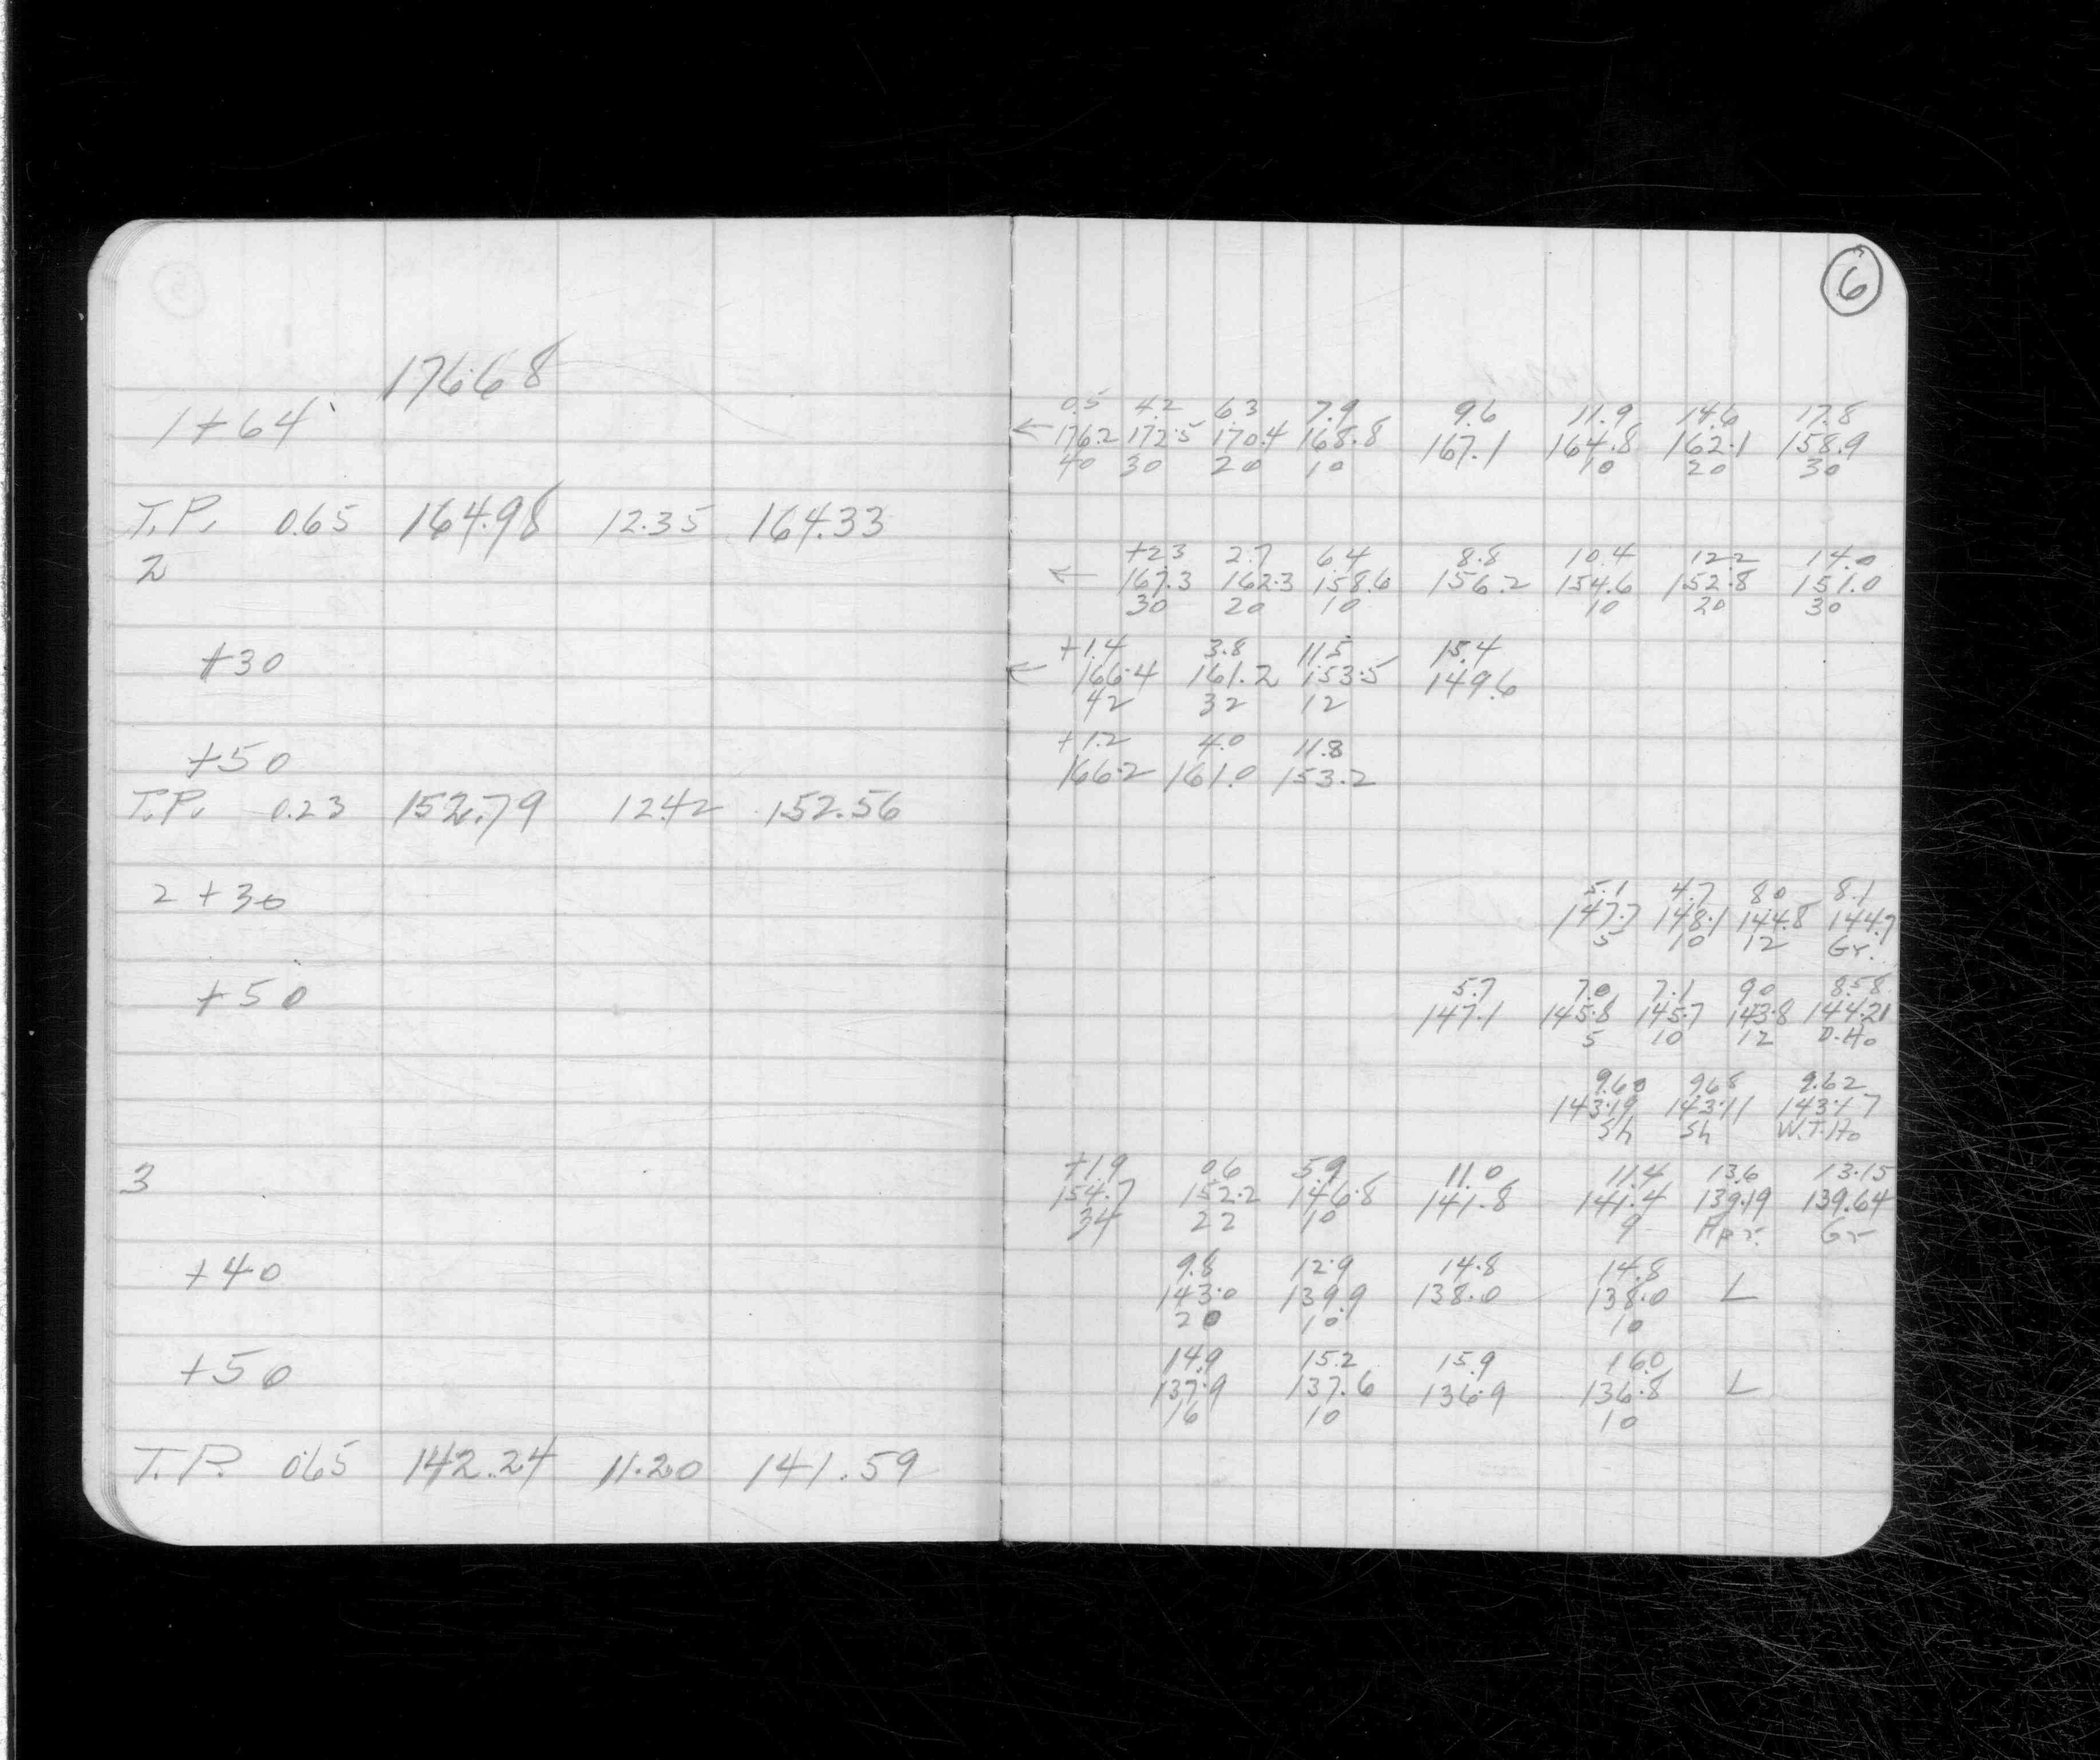 6
176.68
1+64
0.5 4.2 6.3 7.9 9.6 11.9 14.6 17.8
← 176.2 172.5 170.4 168.8 167.1 164.8 162.1 158.9
40 30 20 10 10 20 30
T.P. 0.65 164.98 12.35 164.33
2
+2.3 2.7 6.4 8.8 10.4 12.2 14.0
← 167.3 162.3 158.6 156.2 154.6 152.8 151.0
30 20 10 10 20 30
+30
+1.4 3.8 11.5 15.4
← 166.4 161.2 153.5 149.6
42 32 12
+50
+1.2 4.0 11.8
166.2 161.0 153.2
T.P. 0.23 152.79 12.42 152.56
2 +30
5.1 4.7 8.0 8.1
147.7 148.1 144.8 144.7
5 10 12 Gr.
+50
5.7 7.0 7.1 9.0 8.58
147.1 145.8 145.7 143.8 144.21
5 10 12 D.Ho
9.60 9.68 9.62
143.19 143.11 143.17
Sh Sh W.T.Ho
3
+1.9 0.6 5.9 11.0 11.4 13.6 13.15
154.7 152.2 146.8 141.8 141.4 139.19 139.64
34 22 10 9 Apr. Gr
+40
9.8 12.9 14.8 14.8
143.0 139.9 138.0 138.0 L
20 10 10
+50
14.9 15.2 15.9 16.0
137.9 137.6 136.9 136.8 L
16 10 10
T.P. 0.65 142.24 11.20 141.59